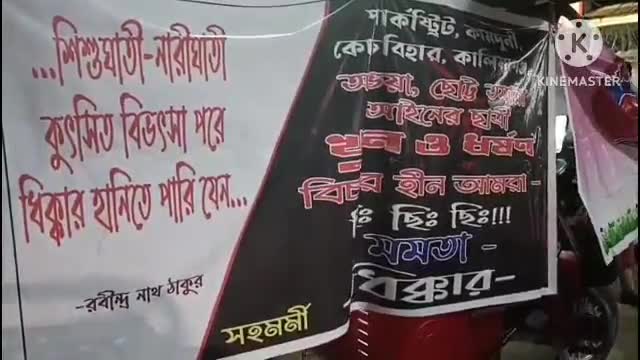 ...শিশুঘাতী-নারীঘাতী
কুৎসিত বিভৎসা পরে
ধিক্কার হানিতে পারি যেন...
-রবীন্দ্র নাথ ঠাকুর
সহমর্মী
পার্কষ্ট্রিট, কামদুনী,
কোচবিহার, কালিয়াগঞ্জ,
অভয়া, ছোট্ট
আইনের ছাত্রী
খুন ও ধর্ষণ
বিচার হীন আমরা -
ছিঃ ছিঃ!!!
মমতা -
ধিক্কার-
KINEMASTER